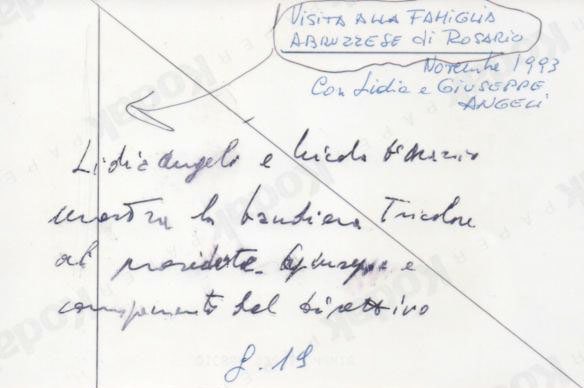 VISITA ALLA FAMIGLIA
ABRUZZESE di ROSARIO
Novembre 1993
Con Lidia e GIUSEPPE
ANGELI
Lidia Angeli e Nicola
mostra la bandiera Tricolore
al presidente Giuseppe e
componenti del direttivo